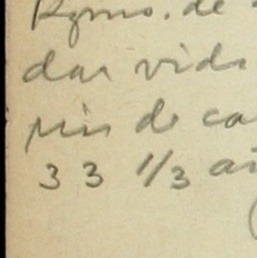 Rgmo. de
dar vida
de ca
33 1/3 añ